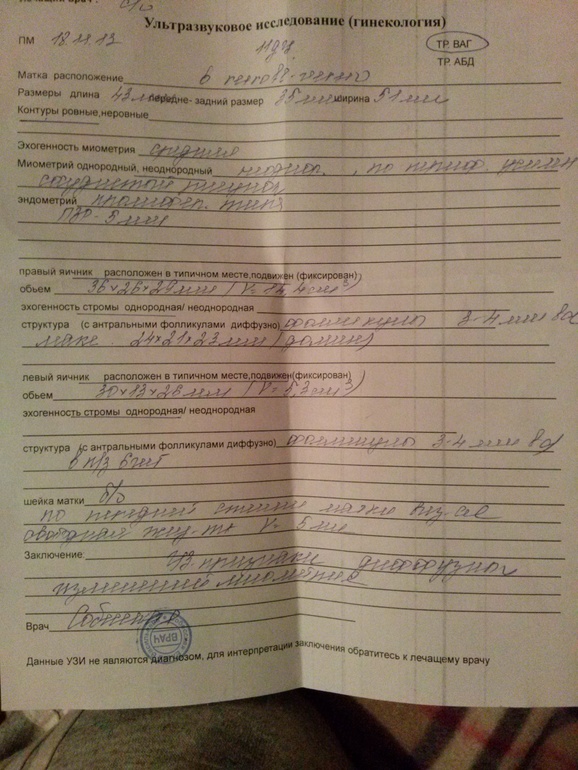 Ультразвуковое исследование (гинекология)
ПМ 18.11.13
ТР. ВАГ
ТР. АБД
Матка расположение в
Размеры длина 43 передне- задний размер 35 мм ширина 51 мм
Контуры ровные,неровные
Эхогенность миометрия средняя
Миометрий однородный, неоднородный неоднор. , по период. усилен
сосудистый рисунок
эндометрий пролифер. типа
5 мм
правый яичник расположен в типичном месте,подвижен (фиксирован)
объем 36х26х29мм
эхогенность стромы однородная/ неоднородная
структура (с антральными фолликулами диффузно) фолликулы 3-4 мм
макс. 24х21х23мм (домин)
левый яичник расположен в типичном месте,подвижен(фиксирован)
объем 30х13х26 мм (V= 5,3см³)
эхогенность стромы однородная/ неоднородная
структура (с антральными фолликулами диффузно) фолликулы 3-4 мм
в п/з
шейка матки б/о
по передней стенке матки виз-ся
свободная жид-ть V= 5 мл
Заключение: УЗ признаки диффузных
изменений миометрия
Врач
ВРАЧ
Данные УЗИ не являются диагнозом, для интерпретации заключения обратитесь к лечащему врачу